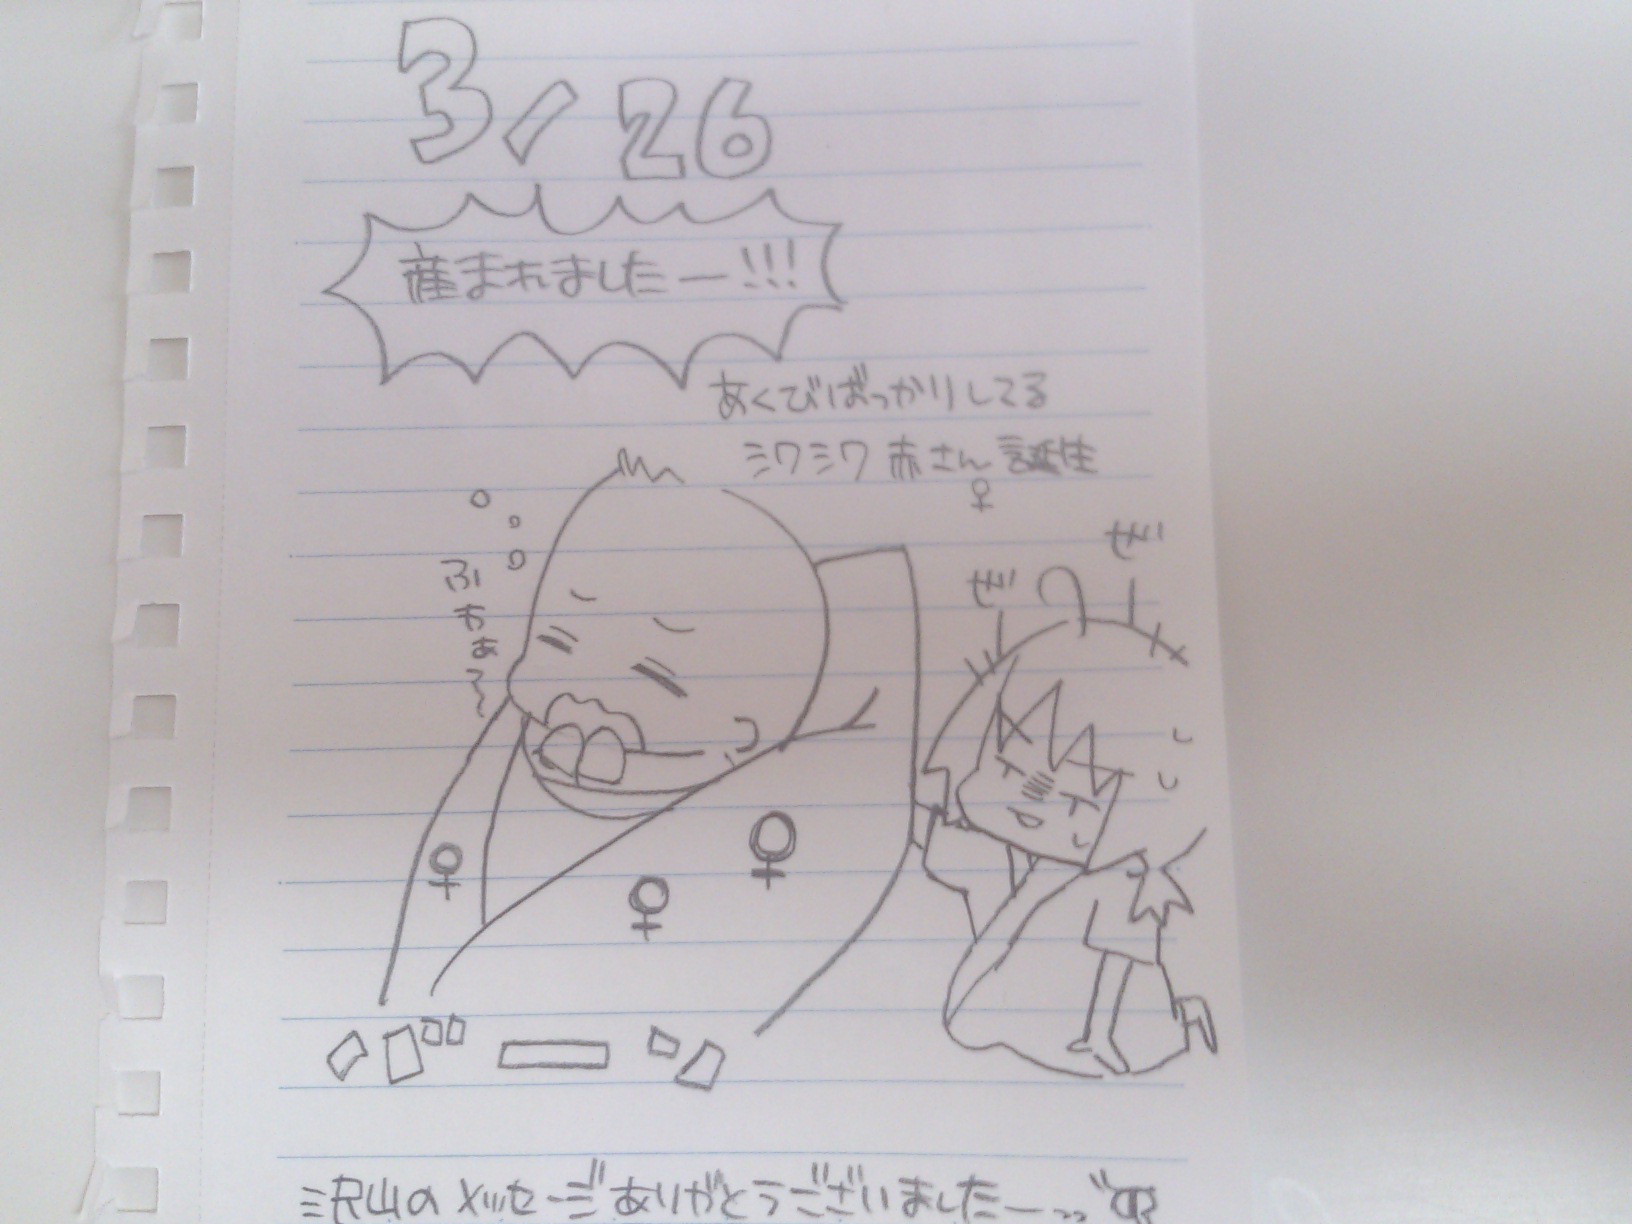 3/26
産まれましたー!!!
あくびばっかりしてる
シワシワ赤さん誕生
♀
ふわぁ〜
ぜー
ぜー
♀
♀
♀
バーン
沢山のメッセージありがとうございましたー